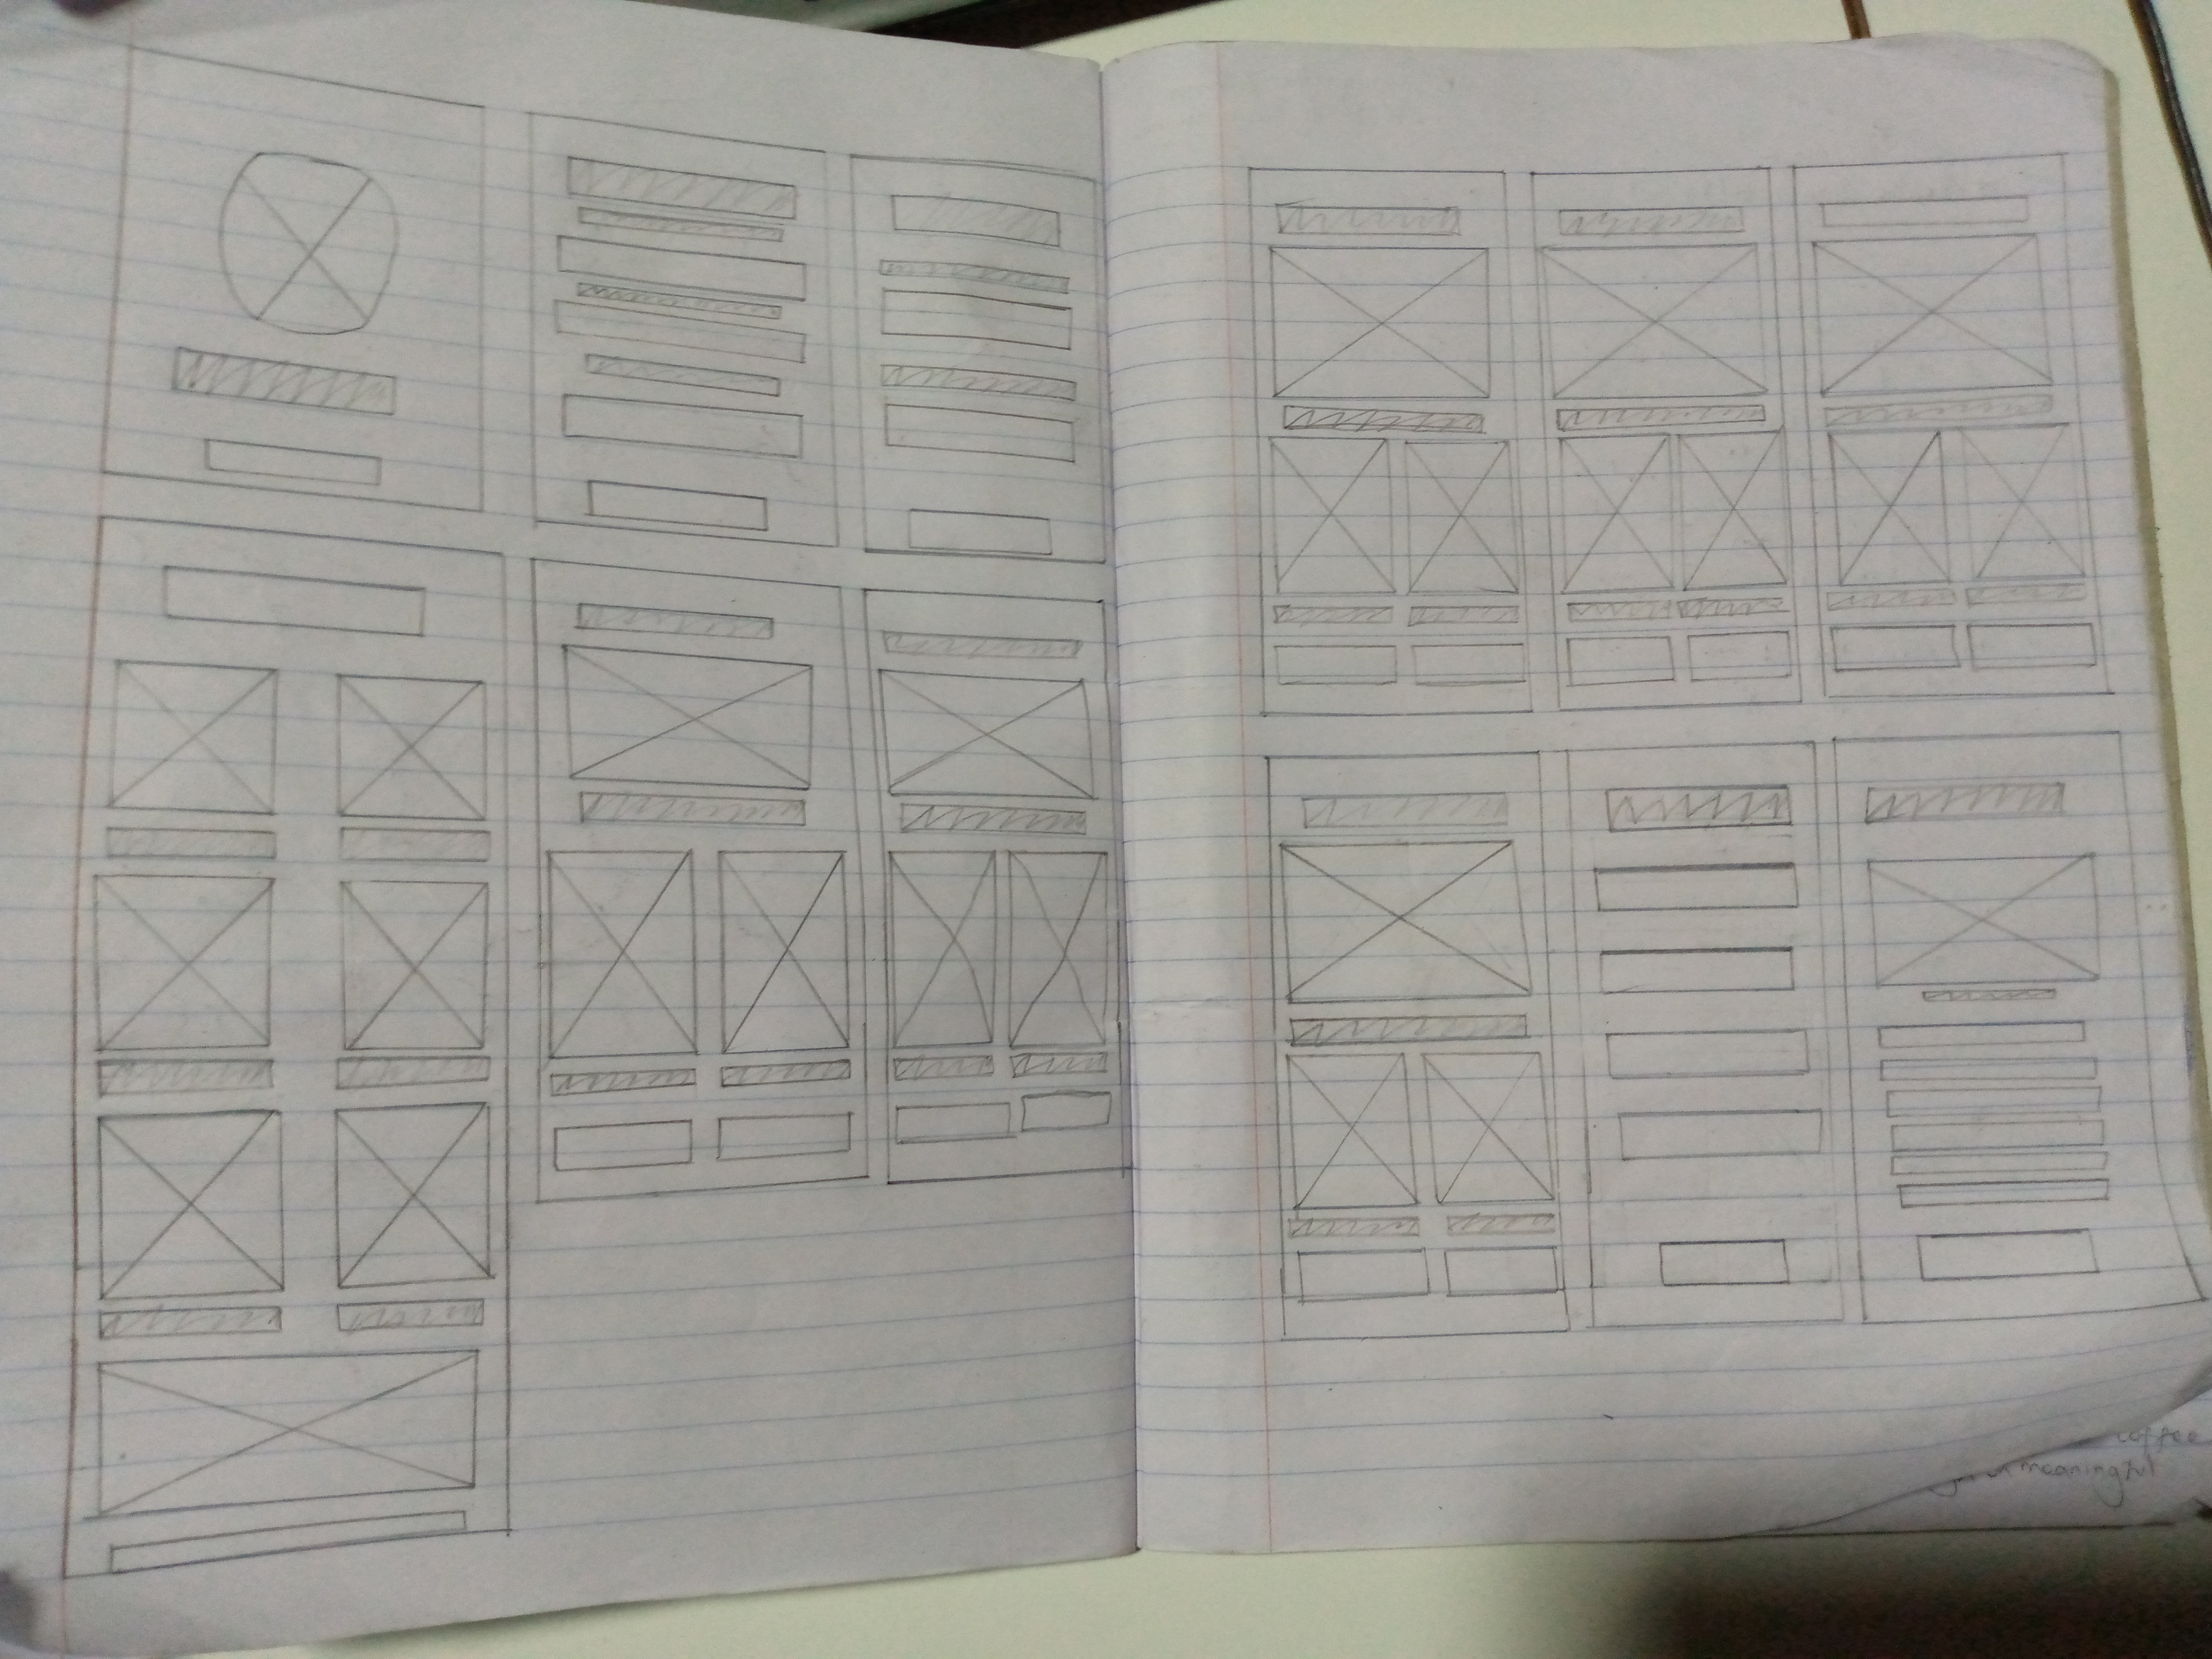 coffee
meaningful